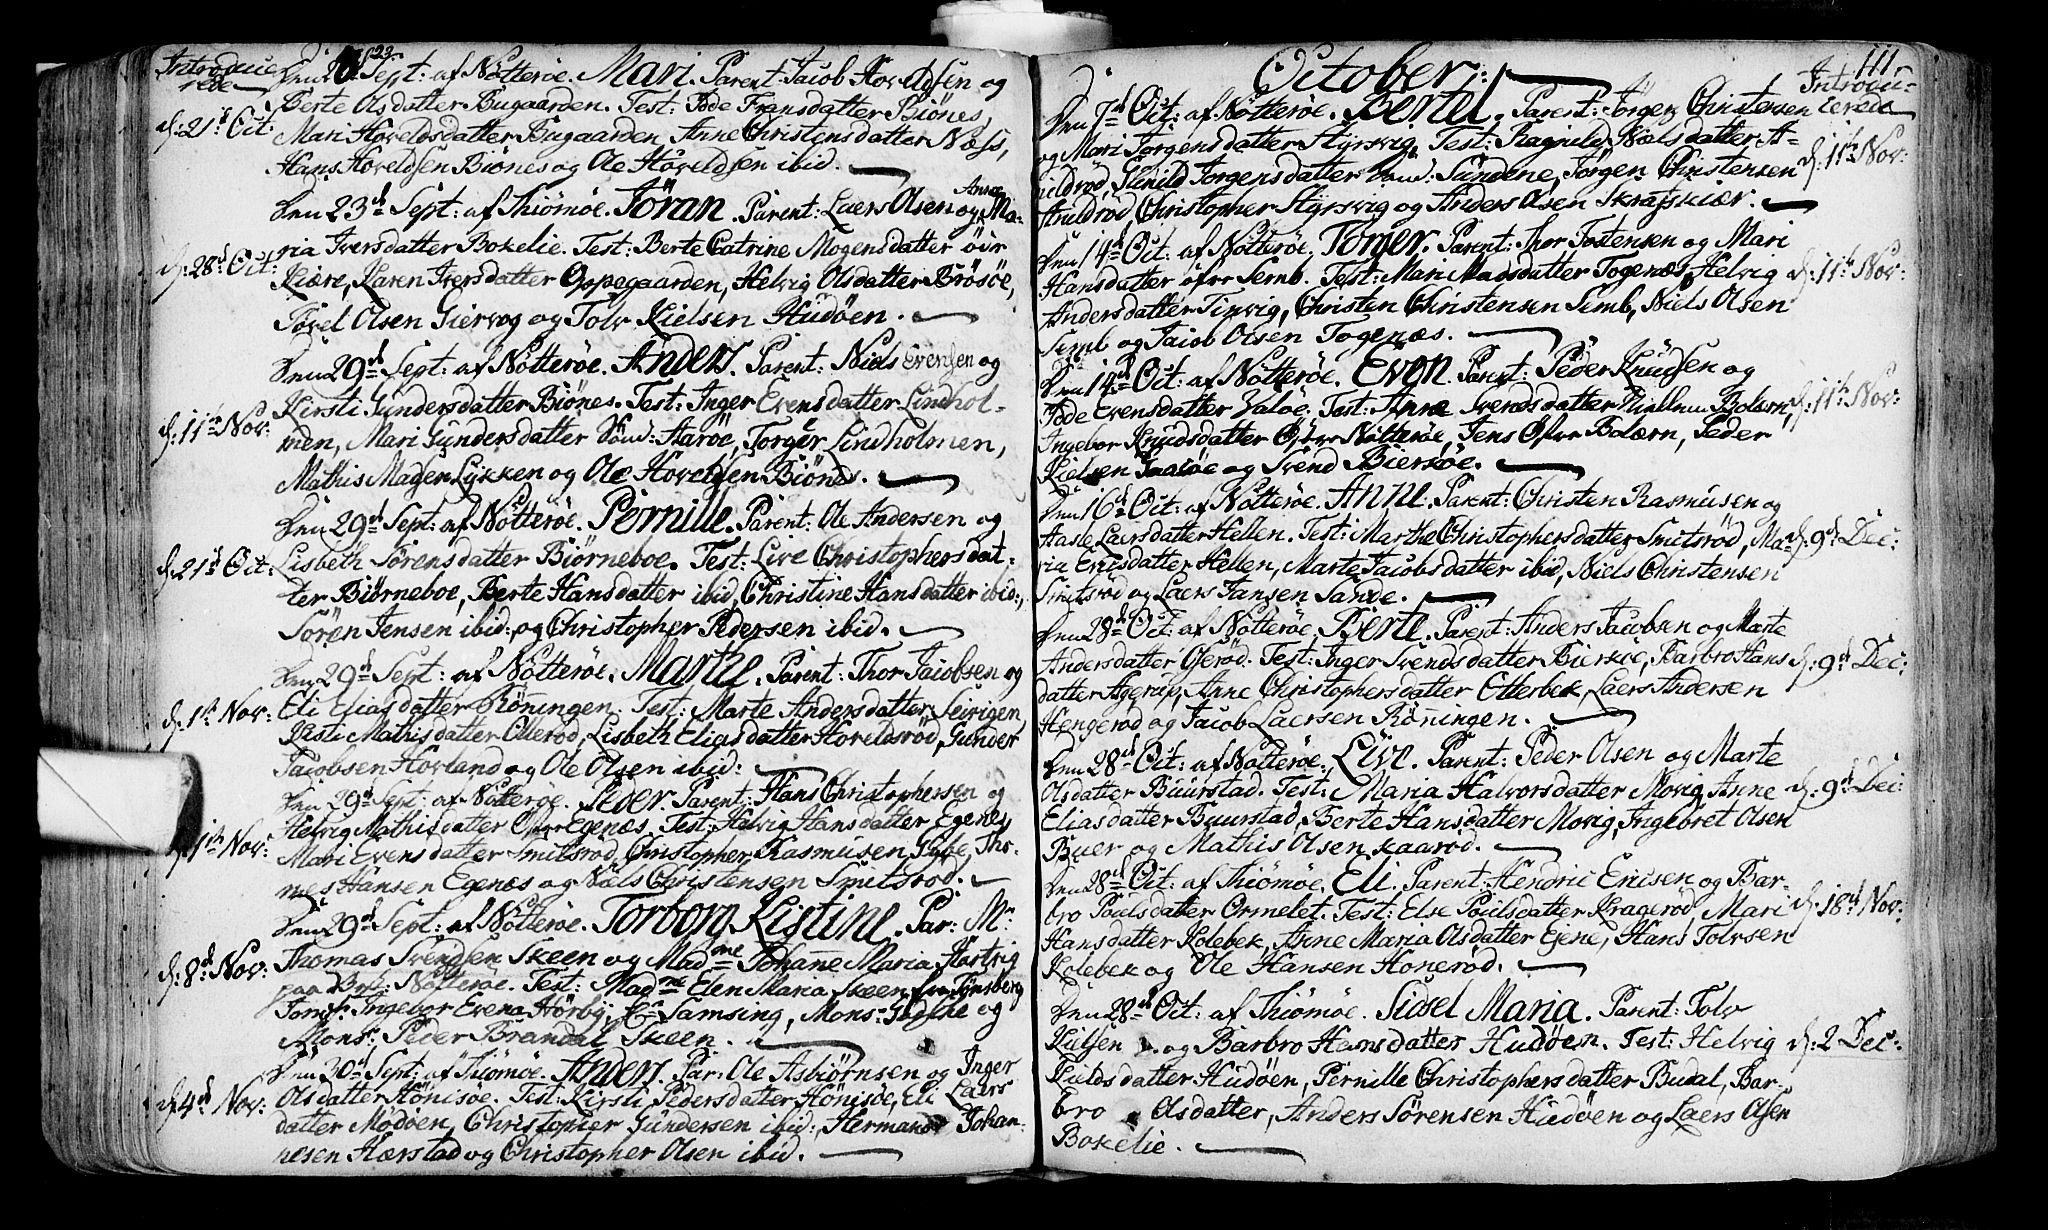 Introduce-
rede
Den 23 Sept: af Nötteröe. Mari. Parent: Jacob Hoveldsen og
Berte Olsdatter Bugaarden. Test: Fransdatter Biönes,
d: 21d Oct:
Mari Hoveldsdatter Bugaarden, Anne Christensdatter Næss,
Hans Hoveldsen Biönes og Ole Hoveldsen ibid.
Den 23d Sept: af Thiömöe. Jöran. Parent: Laers Olsen og Anne Ma-
ria Iversdatter Bokelie. Test: Berte Catrine Mogensdatter
d: 28d Oct:
Kiære, Karen Iversdatter Oppegaarden, Helvig Olsdatter Brösöe,
Olsen Giervog og Tolv Kielsen Hudöen.
Den 29d Sept: af Nötteröe. Anders. Parent: Niels Evensen og
Kirsti Gundersdatter Biönes. Test: Inger Evensdatter Lindhol-
d: 11te Nov:
men, Mari Gundersdatter Aaröe, Torger Lindholmen,
Mathis Lykken og Ole Hoveldsen Biönes.
Den 29d Sept: af Nötteröe. Pernille. Parent: Ole Andersen og
d: 21d Oct:
Lisbeth Sörensdatter Biörneboe. Test: Live Christophersdat-
ter Biörneboe, Berte Hansdatter ibid, Christine Hansdatter ibid:,
Sören Jensen ibid: og Christopher Pedersen ibid.
Den 29d Sept: af Nötteröe. Marte. Parent: Thor Jacobsen og
d: 1te Nov:
Eli Eliasdatter Röningen. Test: Marte Andersdatter
Kisti Mathisdatter Ollerød, Lisbeth Eliasdatter Horeldsröd, Gunder
Jacobsen Hovland og Ole Olsen ibid:
Den 29d Sept: af Nötteröe. Peder. Parent: Hans Christophersen og
Helvig Mathisdatter Egenæs. Test: Helvig Hansdatter Egenæs,
1te Nov:
Mari Evensdatter Smitsröd, Christopher Rasmusen Tho-
mes Hansen Egenæs og Niels Christensen Smitsröd.
Den 29d Sept: af Nötteröe. Torborg Kistine. Par: Mr
d: 8d Nov:
Thomas Svendsen Skeen og Madme Johane Maria Hartvig
paa Nötteröe. Test: Madme Elen Maria Skeen fra Tönsberg
Jomfr Ingebor Evena Samsing, Mons: og
Mons: Peder Brandal Skeen.
Den 30d Sept: af Tiömöe. Anders. Par: Ole Asbiörnsen og Inger
d: 4d Nov:
Olsdatter Hönisöe. Test: Kirsti Pedersdatter Hönisöe, Eli Laers
datter Mödöen, Christopher Gundersen ibid:, Herman Johan-
nesen Hærstad og Christopher Olsen ibid.
111
October:
Introdu-
cerede
Den 7d Oct: af Nötteröe. Bertel. Parent: Jörgen Christensen
d: 11te Nov:
og Mari Jörgensdatter Hyrsvig. Test: Ragnild Nielsdatter A-
ruldröd, Gunild Jorgensdatter Sundene, Jörgen Christensen
Aruldröd Christopher Hyrsvig og Anders Olsen Skrafskiær.
Den 14d Oct: af Nötteröe. Torger. Parent: Thor Tostensen og Mari
Hansdatter öfvr Semb. Test: Mari Madsdatter Togenæs, Helvig
d: 11te Nov:
Andersdatter Christen Christensen Semb, Niels Olsen
Semb og Jacob Olsen Togenæs.
Den 14d Oct: af Nötteröe. Even. Parent: Peder Knudsen og
Evensdatter Valöe. Test: Anne Svendsdatter Bolærn,
d: 11te Nov:
Ingebor Knudsdatter Nötteröe, Jens Ofvr Bolærn, Peder
Kielsen og Svend Bierköe.
Den 16d Oct: af Nötteröe. Anne. Parent: Christen Rasmusen og
Aasle Laersdatter Hellen. Test: Marthe Christophersdatter Smitsröd, Ma-
d: 9d Dec:
ria Ericsdatter Hellen, Marte Jacobsdatter ibid, Niels Christensen
Smitsröd og Laers Hansen Sande.
Den 28d Oct: af Nötteröe. Berte. Parent: Anders Jacobsen og Marte
Andersdatter Test: Inger Svendsdatter Bierköe, Barbro Hans
d: 9d Dec:
datter Agerup, Anne Christophersdatter Etterbek, Laers Andersen
Hengeröd og Jacob Laersen Röningen.
Den 28d Oct: af Nötteröe. Live. Parent: Peder Olsen og Marte
Olsdatter Buurstad. Test: Maria Halvorsdatter Movig, Anne
d: 9d Dec:
Eliasdatter Buurstad, Berte Hansdatter Movig, Ingebret Olsen
Buer og Mathis Olsen Kaaröd.
Den 28d Oct: af Thiömöe. Eli. Parent: Hendric Ericsen og Bar-
bro Poulsdatter Ormelet. Test: Else Poulsdatter Krageröd, Mari
d: 18d Nov:
Hansdatter Kolebek, Anne Maria Olsdatter Eiene, Hans Tolvsen
Kolebek og Ole Hansen Honeröd.
Den 28d Oct: af Thiömöe. Sidsel Maria. Parent: Tolv
Kielsen og Barbro Hansdatter Hudöen. Test: Helvig
d: 2 Dec:
Kieldsdatter Hudöen, Pernille Christophersdatter Budal, Bar-
bro Olsdatter, Anders Sörensen Hudöen og Laers Olsen
Bokelie.